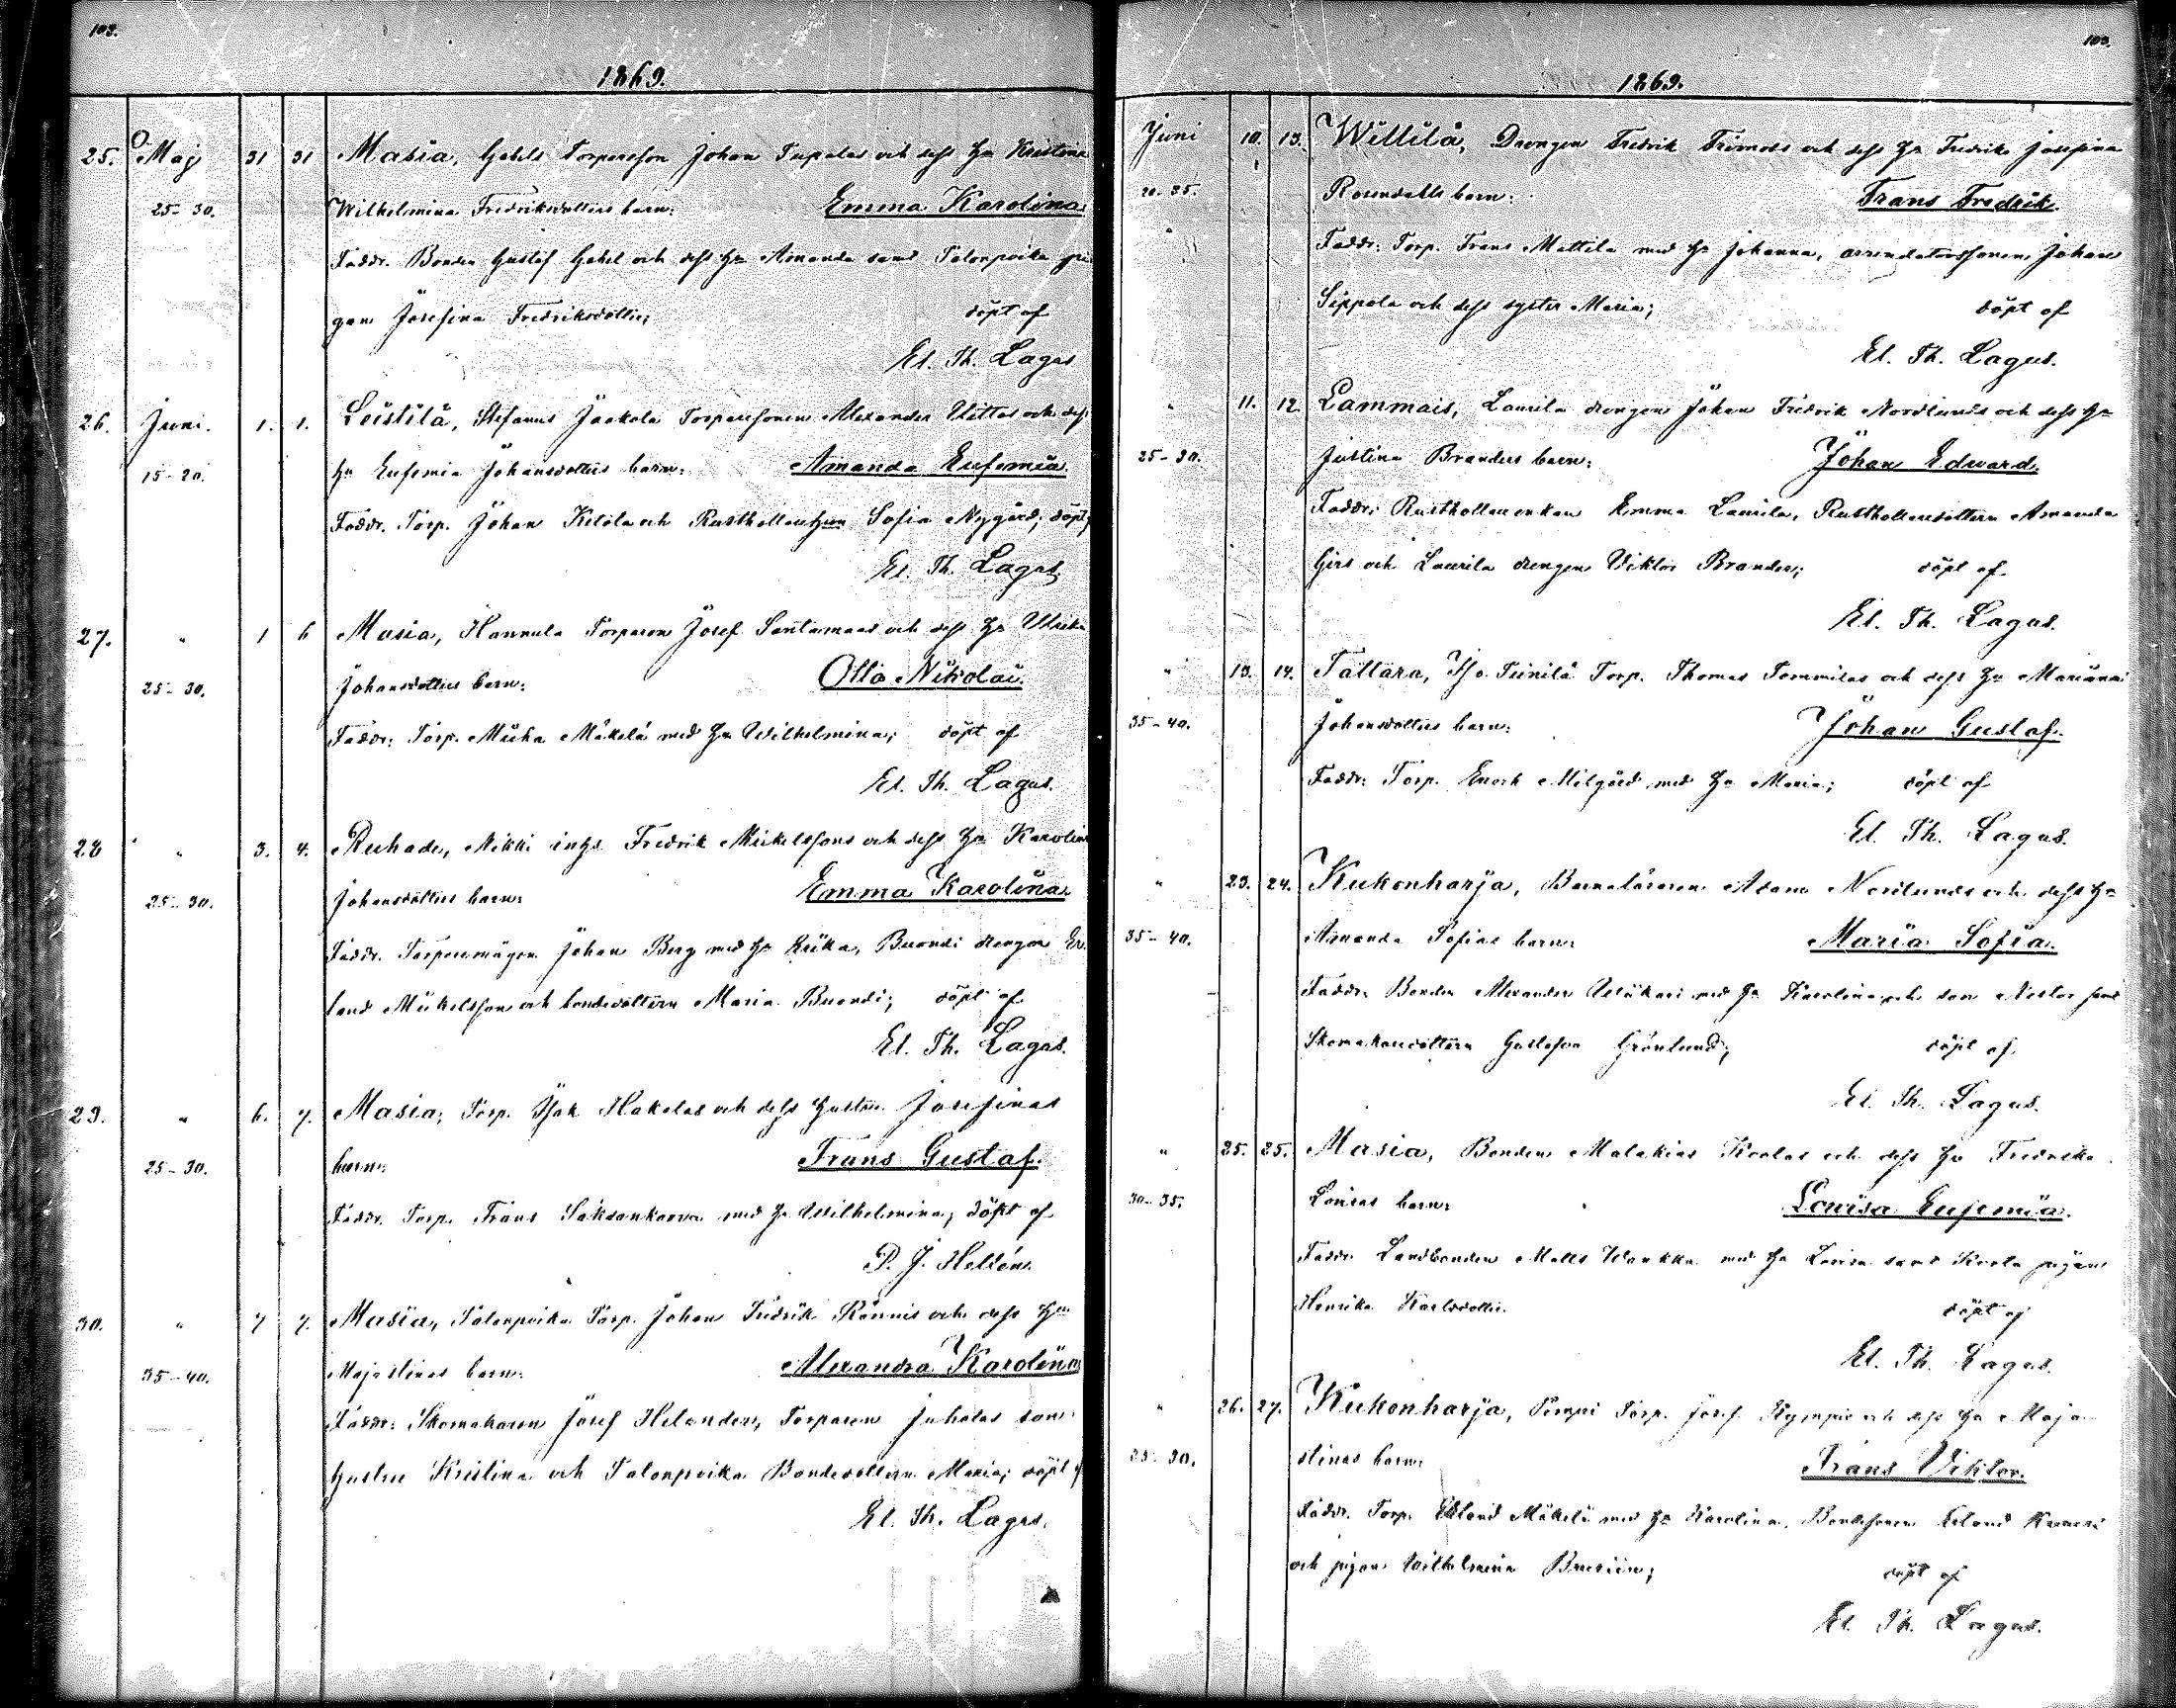 103.
1869.
25. Maj 31 31 Masia, Gahels Torparesson Johan Tupalas och dess Hu Kristina
25-30. Wilhelmina Fredriksdotters barn: Emma Karolina
Faddr. Bonden Gustaf Gahel och dess Hu Amanda samt Talonpoika pi
gan Josefina Fredriksdotter; döpt af
El. Th. Lagus
26. Juni. 1. 1. Leistilä, Stefanus Jaakola Torparesonen Alexander och dess
15-20. Hu Eufemia Johansdotters barn: Amanda Eufemia.
Faddr. Torp. Johan Ketola och Rusthollare Hun Sofia Nygård; döpt
El. Th. Lagus.
27. " 1 6 Masia, Hannula Torparen Josef Santamaas och dess Hu Ulrika
25-30. Johansdotters barn: Otto Nikolai.
Faddr: Torp. Miika Mäkelä med Hu Wilhelmina; döpt af
El. Th. Lagus.
28 " 3. 4. Ruhade, Nikki inhs. Fredrik Mickelssons och dess Hu Karolina
25-30. Johansdotters barn: Emma Karolina.
Faddr. Torparemågen Johan Berg med Hu Brita, Buandi drengen Er
land Mickelsson och bondedottern Maria Buandi; döpt af
El. Th. Lagus.
29. " 6. 7. Masia, Torp. Isak Hakalas och dess hustru Josefinas
25-30. barn: Frans Gustaf.
Faddr. Torp. Frans Saksankorva med Hu Wilhelmina; döpt af
P. J. Hellén.
30. " 7 7. Masia, Talonpoika Torp. Johan Fredrik Rännis och dess Hu
35-40. Majastinas barn: Alexandra Karolina
Faddr: Skomakaren Josef Helander, Torparen Juhalas son
hustru Kristina och Talonpoika Bondedottern Maria; döpt af
El. Th. Lagus.
103.
1869.
Juni 10. 13. Willilä, Drengen Fredrik och dess Hu Fredrika Josefina
20-25. Rosendells barn: Frans Fredrik.
Faddr: Torp. Frans Mattila med Hu Johanna, arrendatorssonen Johan
Sippola och dess syster Maria; döpt af
El. Th. Lagus.
" 11. 12. Lammais, Laurila drengen Johan Fredrik Nordlunds och dess Hu
25-30. Justina Branders barn: Johan Edward.
Faddr: Rusthollareenkan Emma Laurila, Rusthollaredottern Amanda
Girs och Laurila drengen Viktor Brander; döpt af
El. Th. Lagus.
" 13. 14. Tattara, Iso Teinilä Torp. Thomas Tommilas och dess Hu Marianna
35-40. Johansdotters barn: Johan Gustaf.
Faddr: Torp. Enoch Milgård med Hu Maria; döpt af
El. Th. Lagus.
" 23. 24. Kukonharja, Barnaläraren Adam Nordlunds och dess Hu
35-40. Amanda Sofias barn: Maria Sofia.
Faddr. Bonden Alexander med Hu Karolina och son Nestor samt
Skomakaredottern Gustafva Grönlund; döpt af
El. Th. Lagus.
" 25. 25. Masia, Bonden Malakias Krolas och dess Hu Fredrika
30-35. Louisas barn: Lowisa Eufemia.
Faddr. Landbonden Matts med Hu Lovisa samt Krola pigan
Henrika Karlsdotter. döpt af
El. Th. Lagus.
" 26. 27. Kukonharja, Torp. Josef och dess Hu Maja
25-30. stinas barn: Frans Viktor.
Faddr. Torp. Erland Mäkelä med Hu Karolina, Bondesonen Erland
och pigan Wilhelmina; döpt af
El. Th. Lagus.